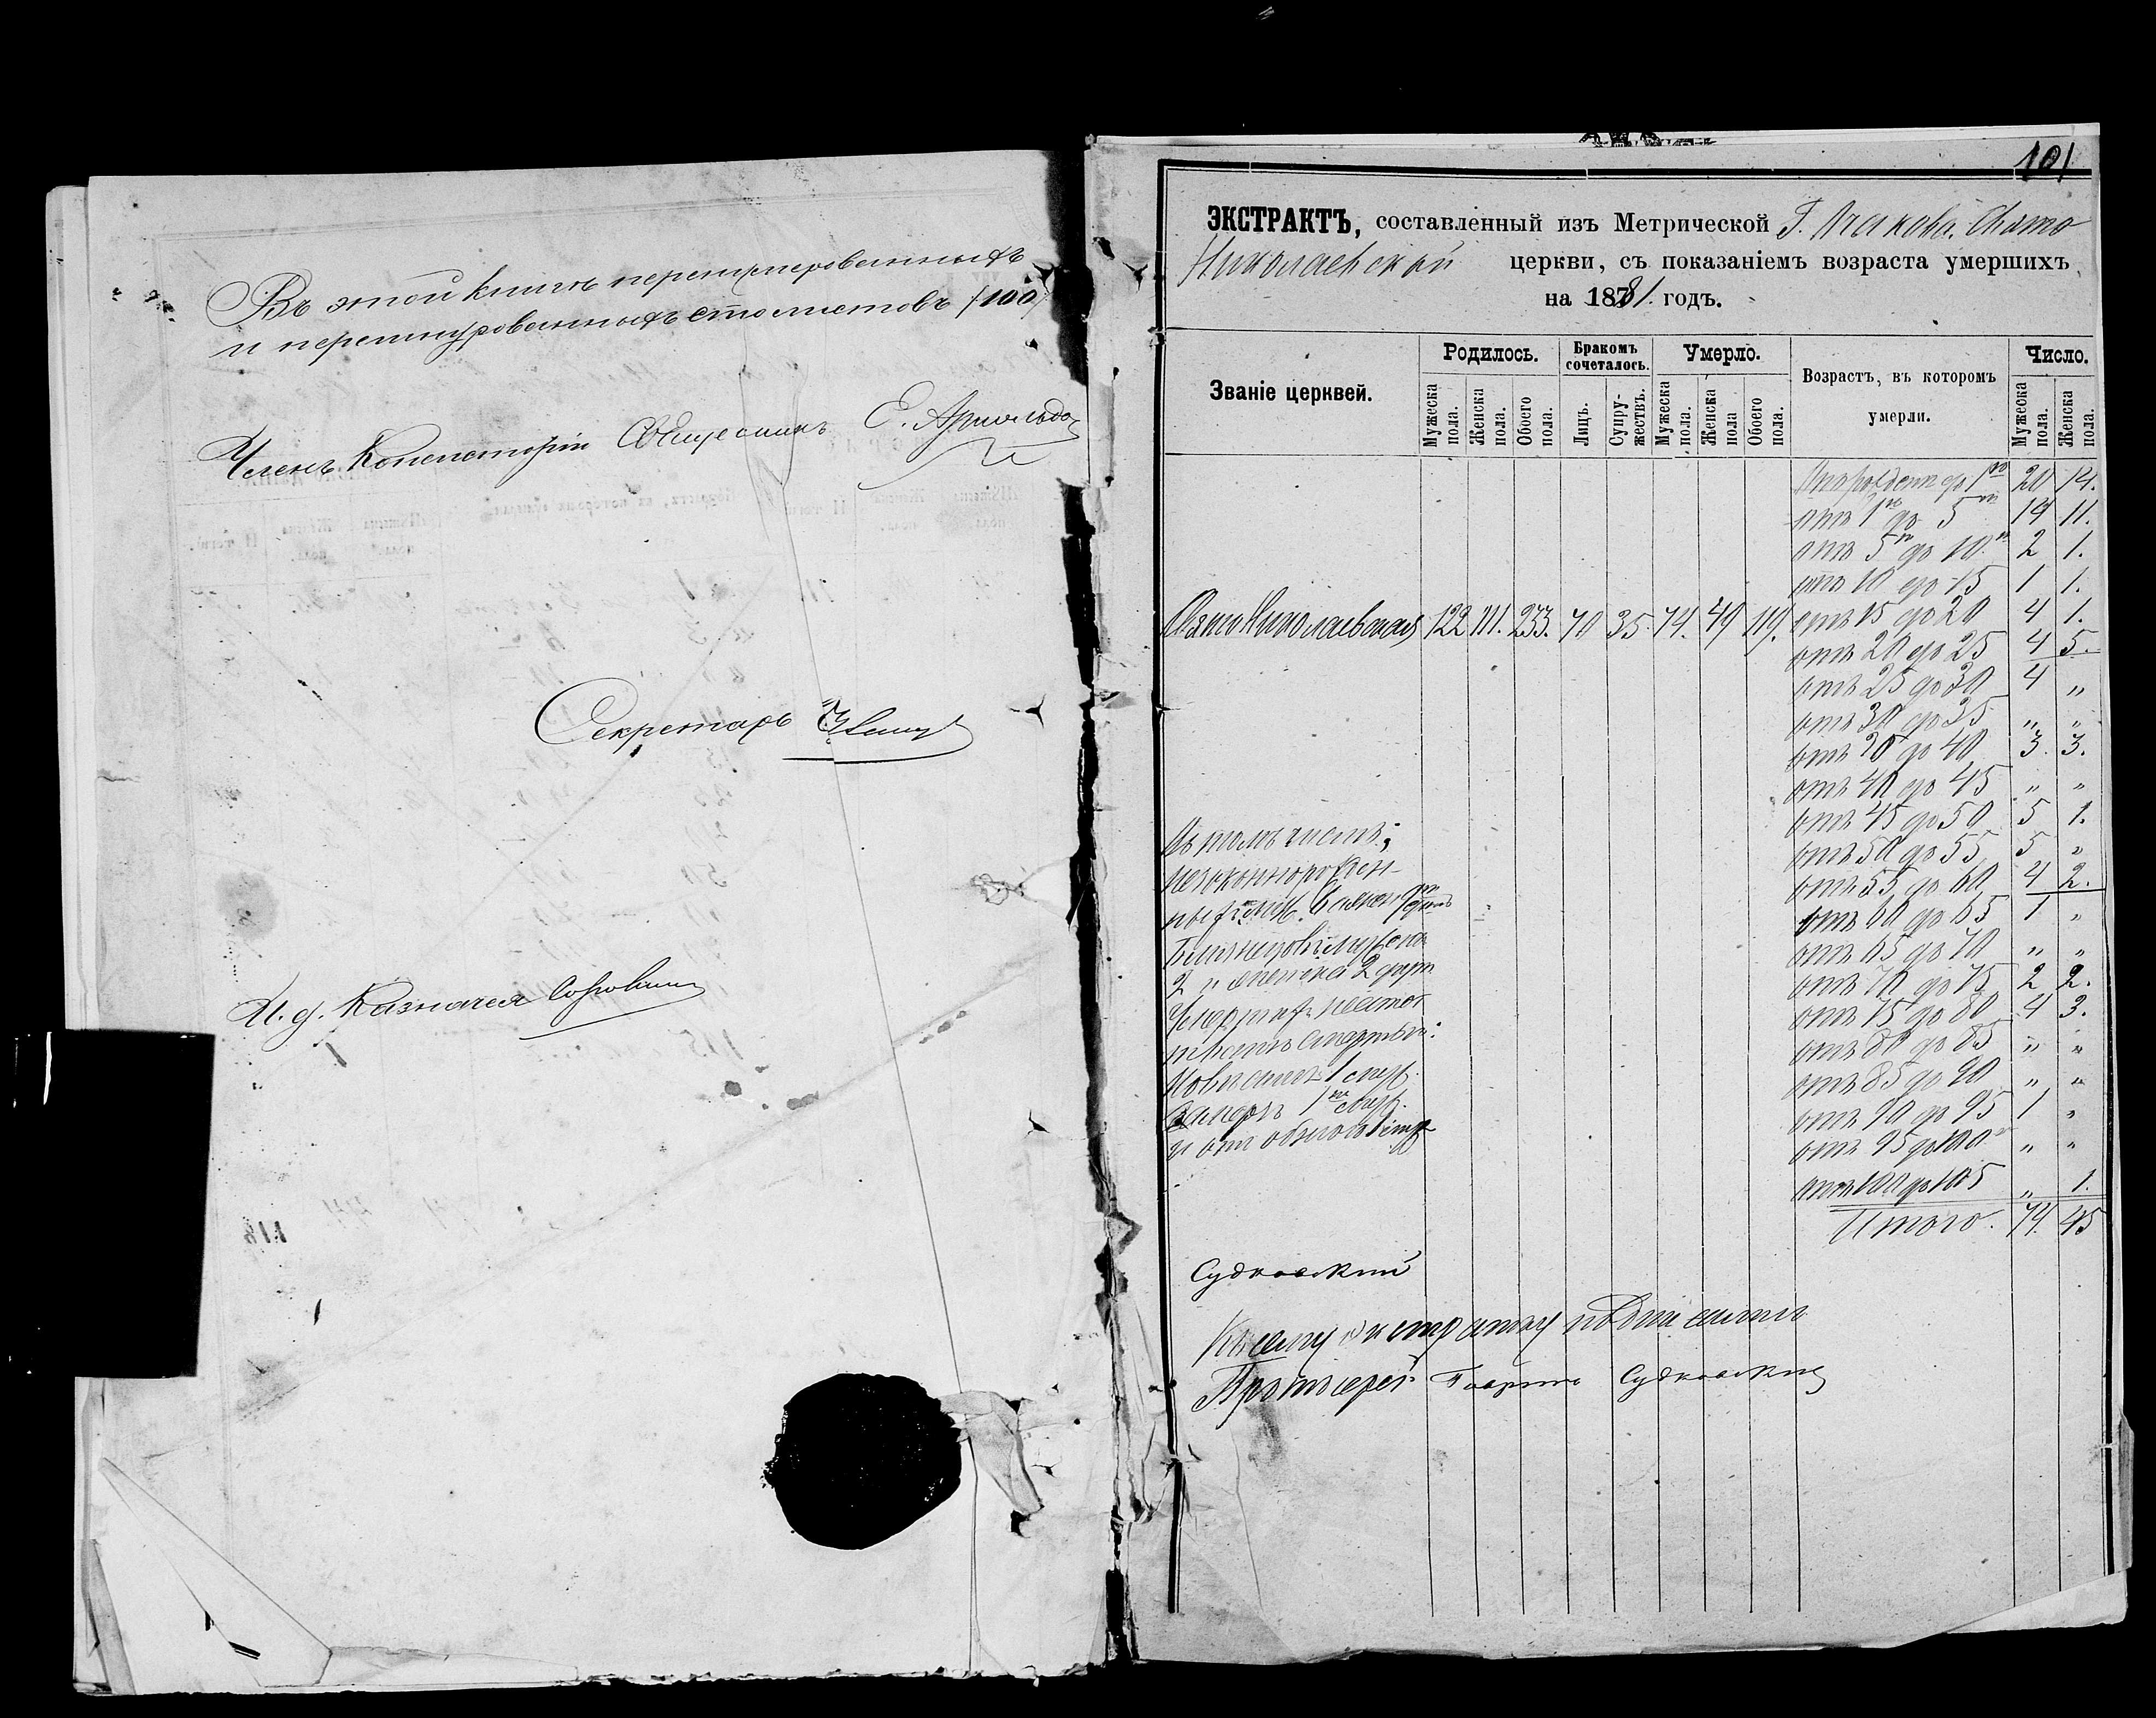 Въ этой книгѣ перенумерованныхъ
и перешнурованныхъ сто листовъ (100)
Членъ Консисторіи Священникъ Е. Арнольдовъ
Секретарь
И. д. Казначея
101
ЭКСТРАКТЪ, составленный изъ Метрической Г. Очакова Свято
Николаевской церкви, съ показаніемъ возраста умершихъ
на 1881 годъ.
Званіе церквей.
Родилось.
Бракомъ сочеталось.
Умерло.
Возрастъ, въ которомъ умерли.
Число.
Мужеска пола.
Женска пола.
Обоего пола.
Лицъ.
Супружествъ.
Мужеска пола.
Женска пола
Обоего пола.
Мужеска пола.
Женска пола.
до 1го 20 14.
отъ 1го до 5ти 19 11.
отъ 5ти до 10ти 2 1.
отъ 10 до 15 1 1.
СвятоНиколаевская 122 111. 233. 70 35. 74. 49 119. отъ 15 до 20 4 1.
отъ 20 до 25 4 5.
отъ 25 до 30 4 „
отъ 30 до 35 „ „
до 40 3. 3.
отъ 40 до 45 „ „
отъ 45 до 50 5 1.
отъ 50 до 55 5 „
отъ 55 до 60 4 2.
отъ 60 до 65 1 „
отъ 65 до 70 „ „
отъ 70 до 75 2 2.
отъ 75 до 80 4 3.
отъ 80 до 85 „ „
отъ 85 до 90 „ „
отъ 90 до 95 1 „
отъ 95 до 100 „ „
отъ 100 до 105 „ 1.
Итого. 74. 45
Въ томъ числѣ:
незаконнорожден-
ныхъ: муж. 6 женск
Близнецовъ: мужска
2 „ женска 2
Умершихъ
смертью:
1 муж.
1 муж.
и отъ
Судковскій
Къ сему экстракту подписались
Протоіерей Гавріилъ Судковскій